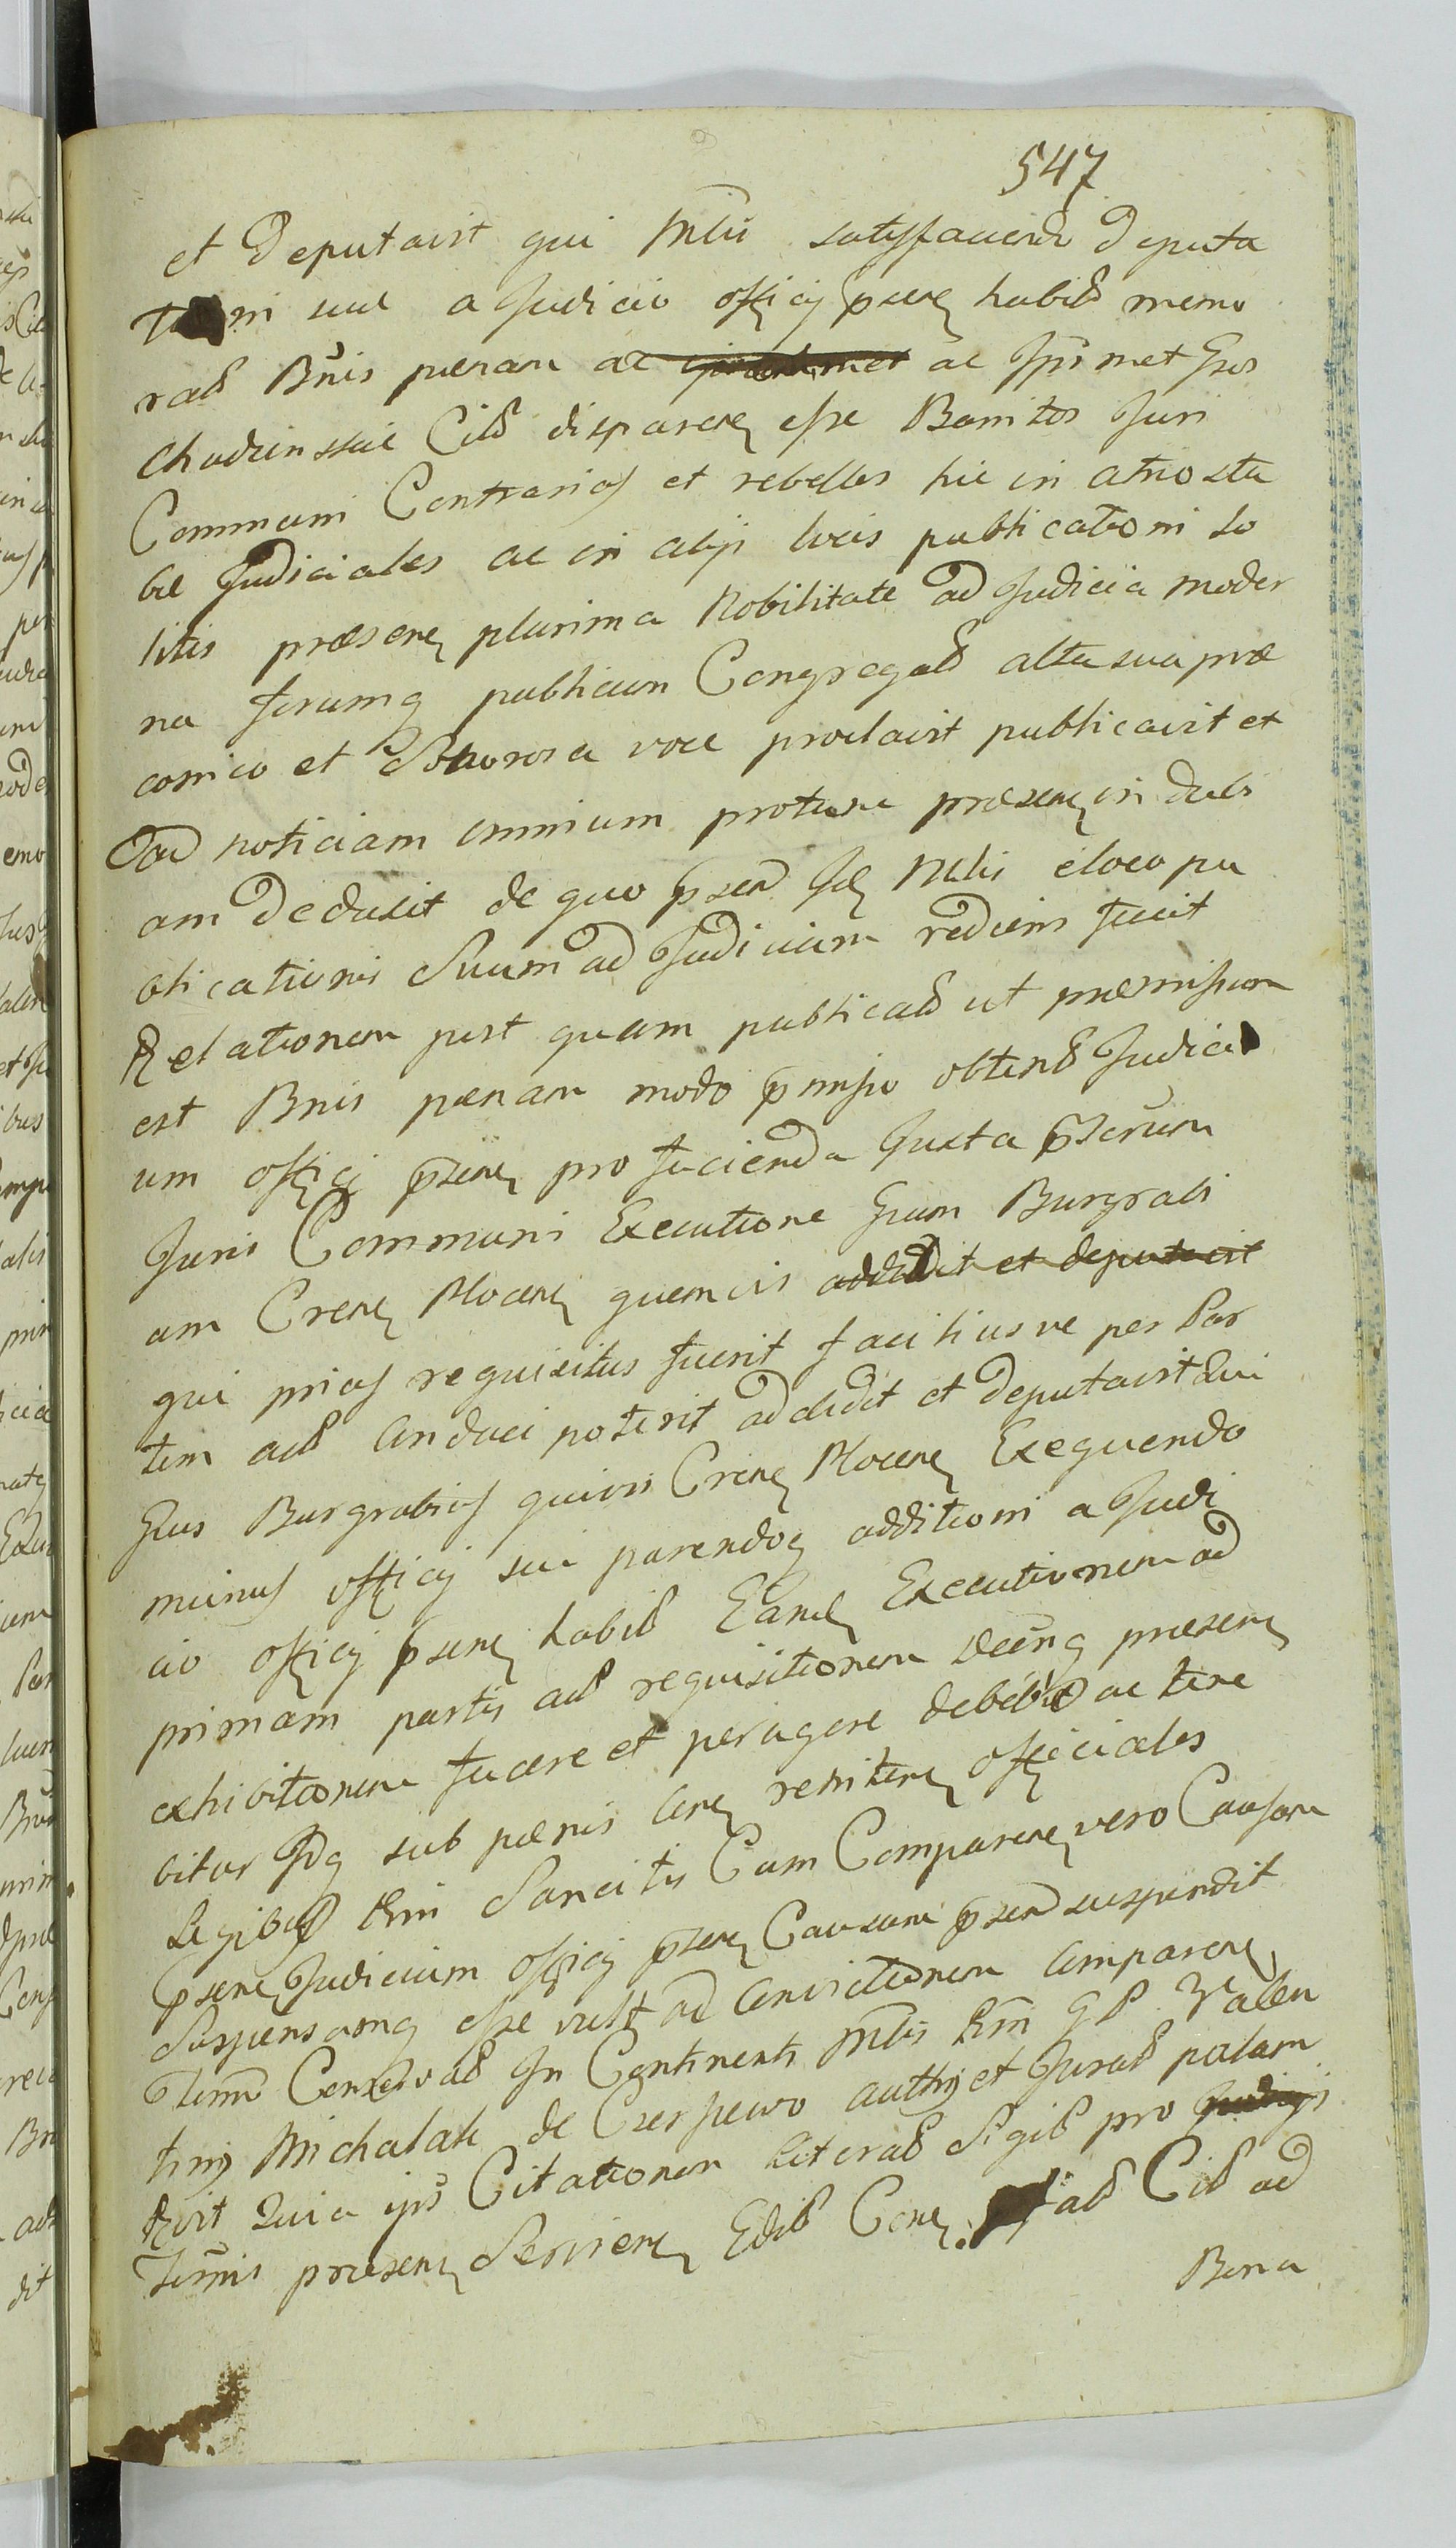 547
et Deputavit qui Mlū satisfaciend Deputa
ni suæ a Judicio officÿ pñtis habit memo
rat Bñis pænam ac ac Ipsimet Gsos
Chudzinsskie Cit disparen esse Banitos Juri
Communi Contrarios et rebelles hic in atrio stu
bæ Judiciales ac in alÿs locis publicationi so
litis præsen plurima Nobilitate ad Judicia moder
na forumq publicum Congregat alta sua præ
conico et Sonorosa voce proclavit publicavit et
ad noticiam omnium protunc præsen in dubi
am Deduxit de quo pñsen Idē Mlis e loco pu
blicationis Suum ad Judicium rediens fecit
Relationem post quam publicat ut præmissum
est Bnis pænam modo pmisso obtent Judici
um officÿ pñsen pro facienda Juxta pscrum
Juris Communi Executione Gsum Burgrabi
am Cren Plocen quemvis addidit et deputavit
qui prius requisitus fuerit faciliusve per Par
tem act Conduci poterit addidit et Deputavit Qui
Gsus Burgrabius quivis Cren Plocen Exequendo
munus officÿ sui parendoq additioni a Judi
cio officÿ pñsen habit Eand Executionem ad
primam partis act requisitionem præsen
exhibitionem facere et peragere debebit ac tene
bitur Idq sub pænis Cen reniten officiales
Legibus Rni Sancitis Cum Comparen vero Causam
pñsen Judicium officÿ pñsen Causam pñsen suspendit
Suspensamq esse vult ad Convictionem Comparen
Termi Conservat In Continenti Mlis Rni G P Valen
tinÿ Michalak de Czerpewo authÿ et Jurat palam
Rvit Quia ips Citationem literat Sigit pro
Termis præsen Servien Edit Cone Cit ad
Bona